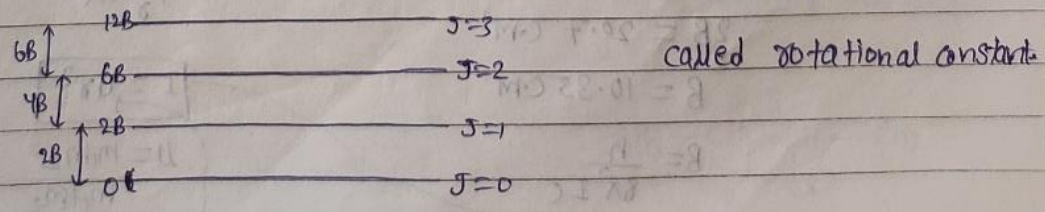 12B J=3
6B called rotational constant.
6B J=2
4B
2B J=1
2B
0 J=0